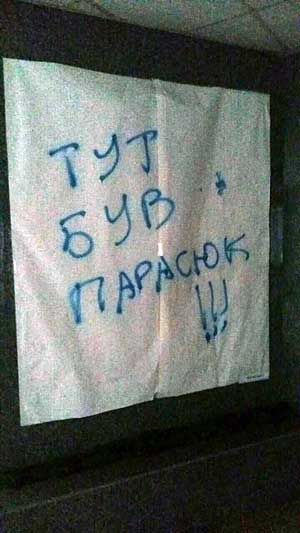 ТУТ
БУВ
ПАРАСЮК
!!!